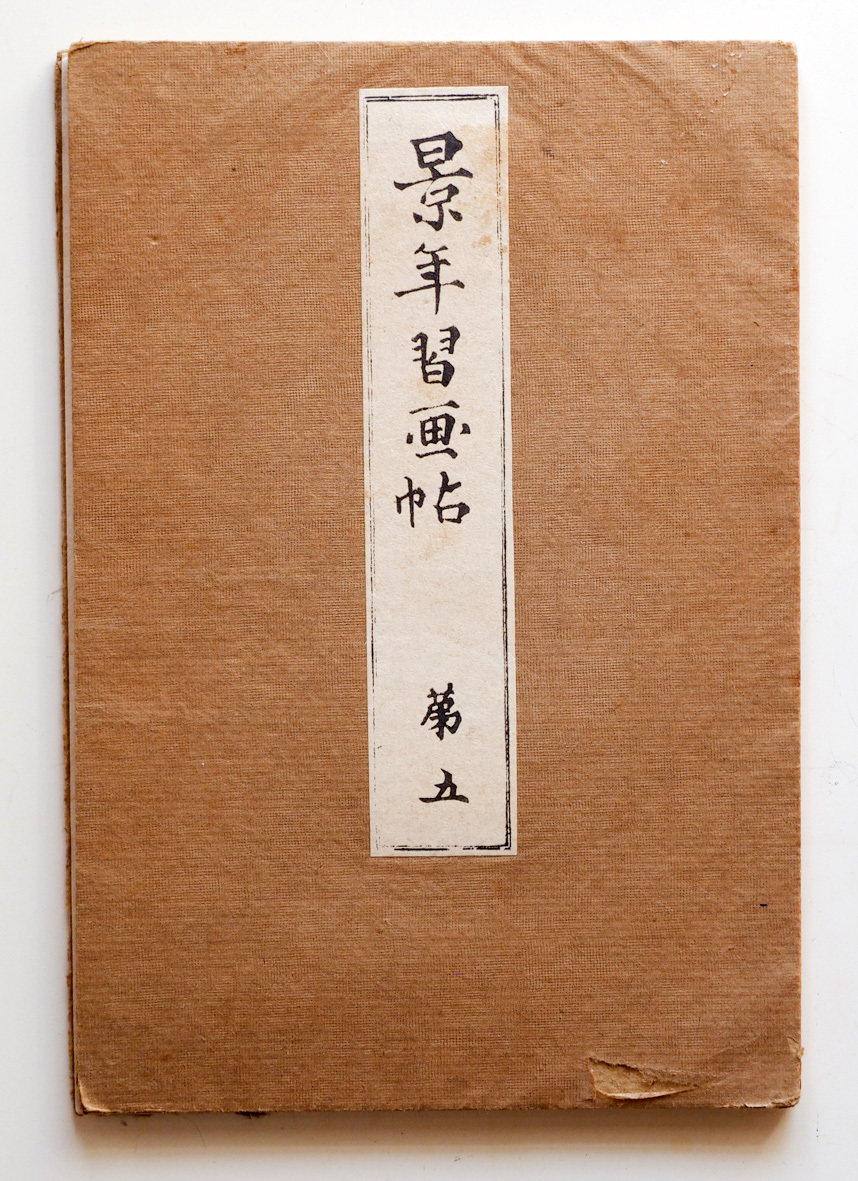 景年習画帖
第五